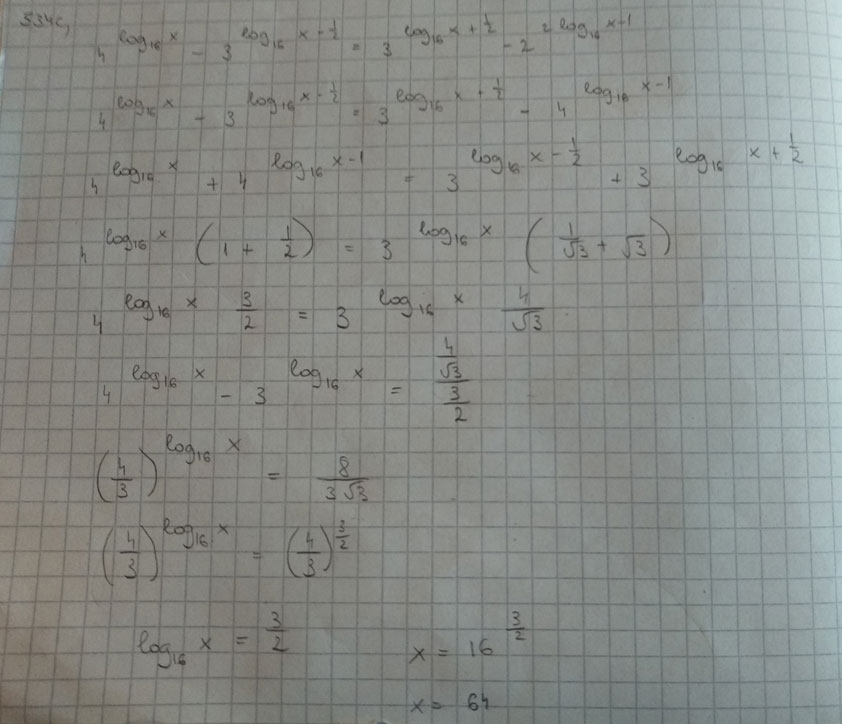 534c,
4^{log_{16} x} - 3^{log_{16} x - \frac{1}{2}} = 3^{log_{16} x + \frac{1}{2}} - 2^{2 log_{16} x - 1}
4^{log_{16} x} - 3^{log_{16} x - \frac{1}{2}} = 3^{log_{16} x + \frac{1}{2}} - 4^{log_{16} x - 1}
4^{log_{16} x} + 4^{log_{16} x - 1} = 3^{log_{16} x - \frac{1}{2}} + 3^{log_{16} x + \frac{1}{2}}
4^{log_{16} x} (1 + \frac{1}{2}) = 3^{log_{16} x} (\frac{1}{\sqrt{3}} + \sqrt{3})
4^{log_{16} x} \frac{3}{2} = 3^{log_{16} x} \frac{4}{\sqrt{3}}
4^{log_{16} x} - 3^{log_{16} x} = \frac{\frac{4}{\sqrt{3}}}{\frac{3}{2}}
(\frac{4}{3})^{log_{16} x} = \frac{8}{3\sqrt{3}}
(\frac{4}{3})^{log_{16} x} = (\frac{4}{3})^{\frac{3}{2}}
log_{16} x = \frac{3}{2} x = 16^{\frac{3}{2}}
x = 64